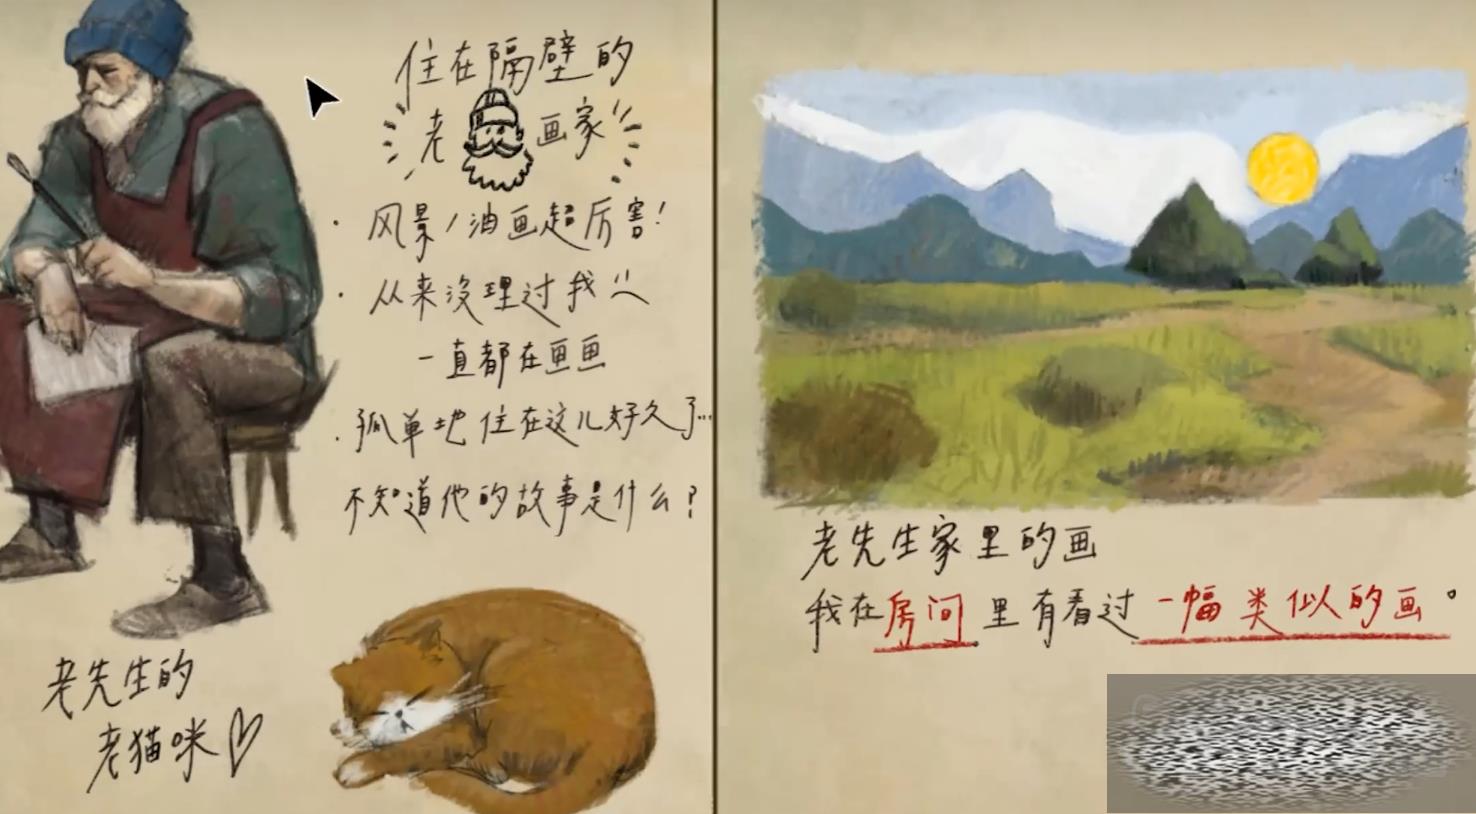 住在隔壁的
老画家
· 风景/油画超厉害!
· 从来没理过我
一直都在画画
· 孤单地住在这儿好久了...
不知道他的故事是什么?
老先生的
老猫咪
老先生家里的画
我在房间里有看过一幅类似的画。